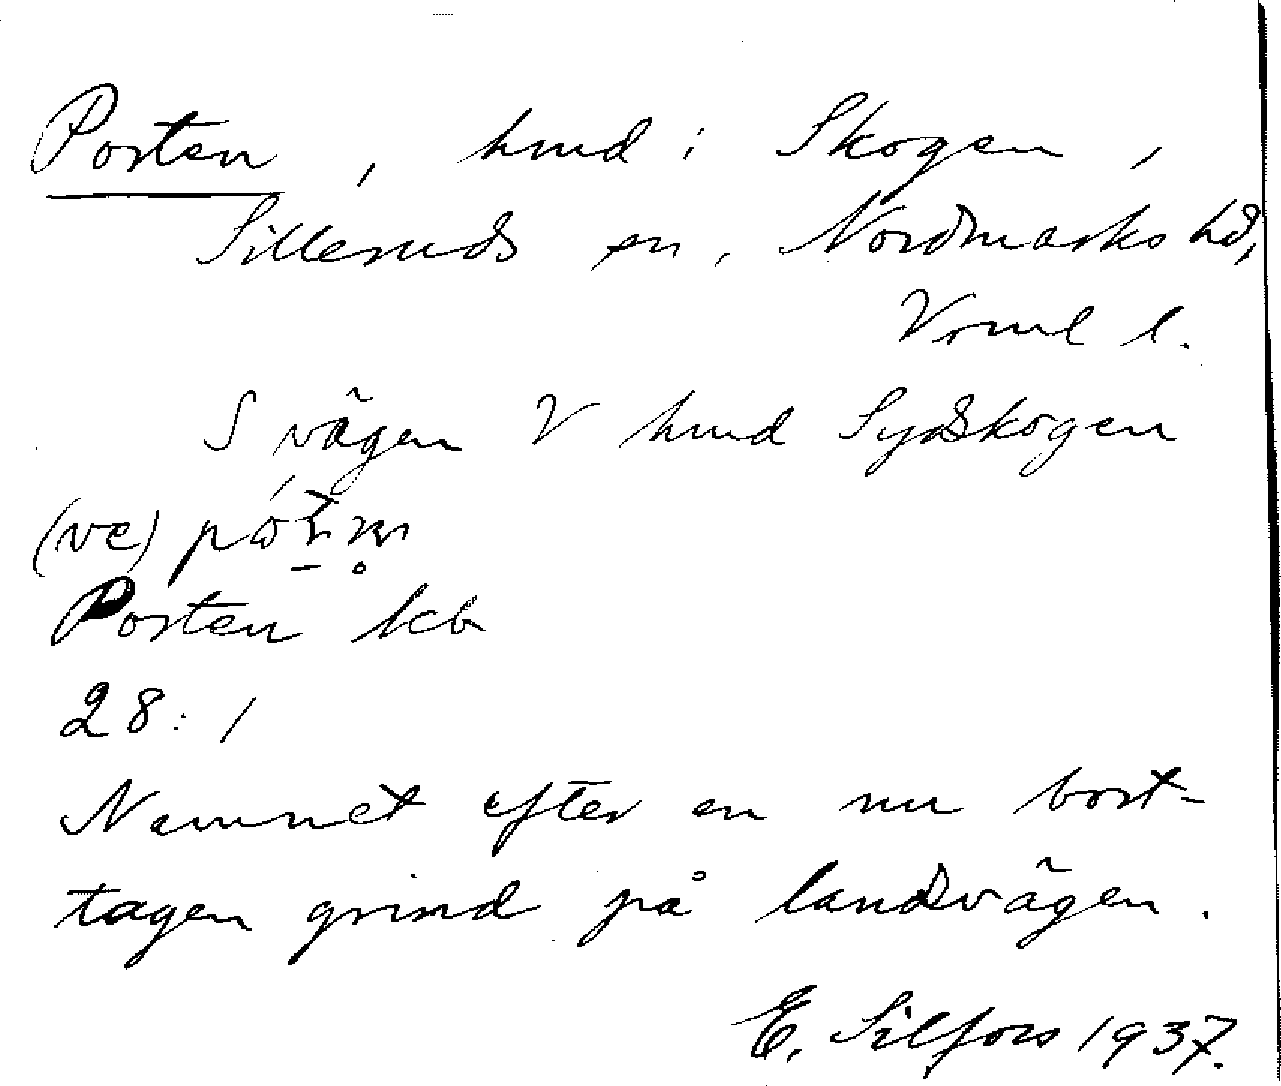 Posten, hmd i Skogen,
Silleruds sn, Nordmarks hd,
Vrml l.
S vägen V hmd Sydskogen
(ve)
Posten kb
28:1
Namnet efter en nu bort-
tagen grind på landsvägen.
E. Silfors 1937.